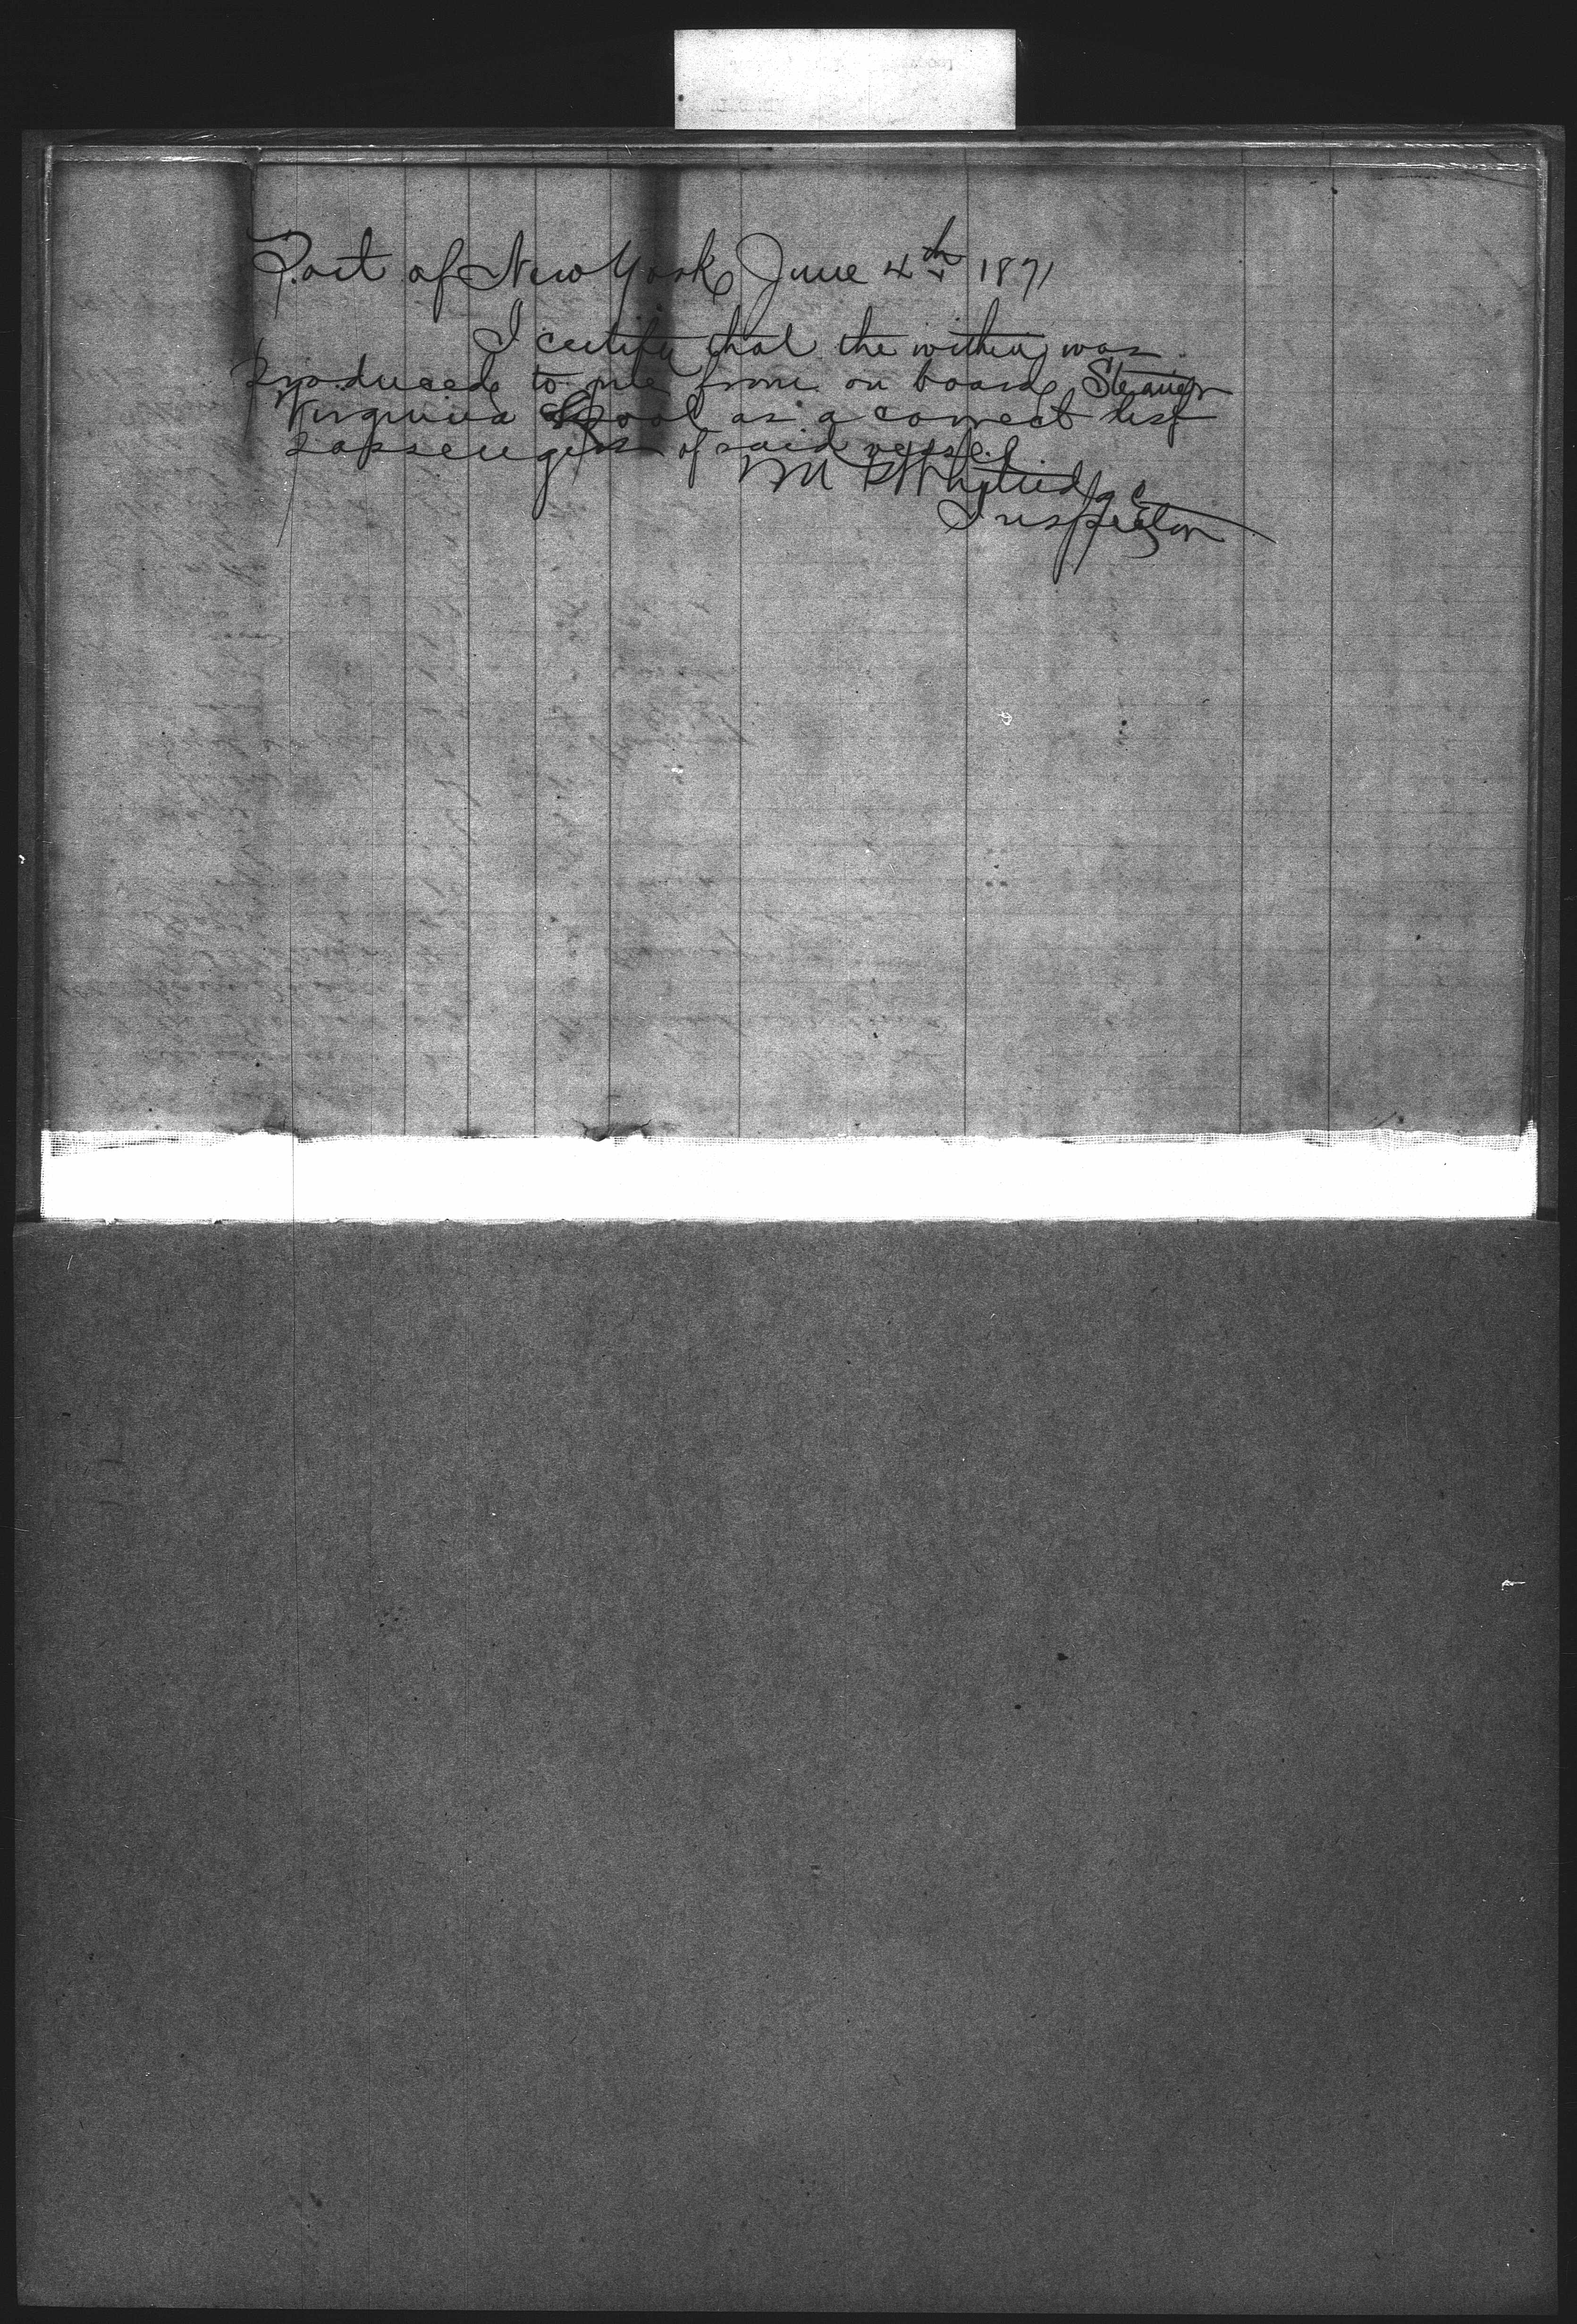 Port of New York June 4th 1871
I certify that the within was
produced to me from on board Steamer
Virginia as a correct list
passengers of said vessel
Inspector